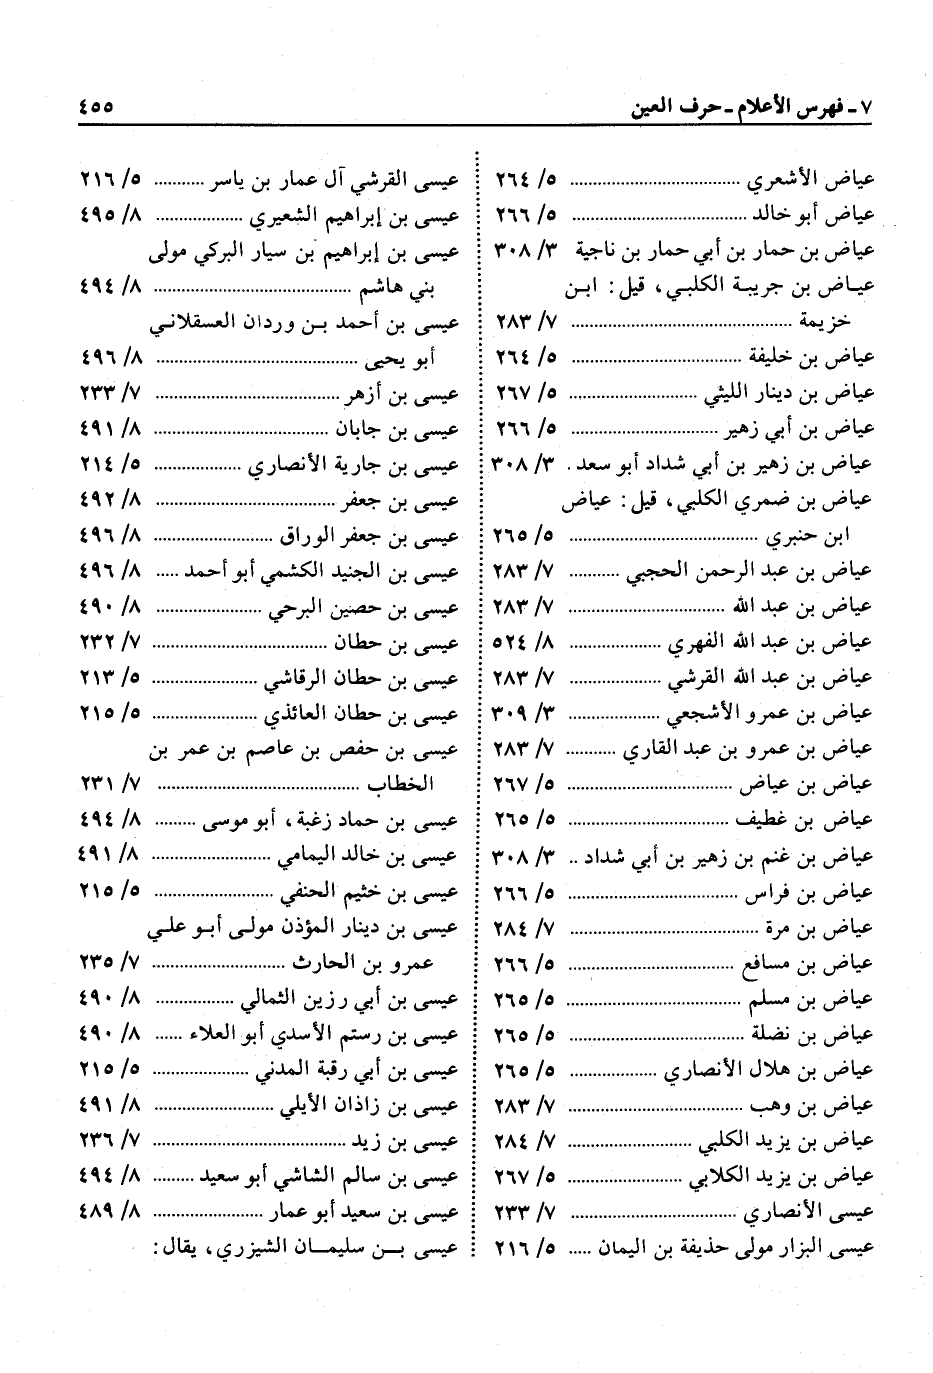 ٧ - فهرس الأعلام - حرف العين
٤٥٥
عياض الأشعري .......... ٥/ ٢٦٤
عياض أبو خالد .......... ٥/ ٢٦٦
عياض بن حمار بن أبي حمار بن ناجية ٣/ ٣٠٨
عياض بن جريبة الكلبي، قيل: ابن
خزيمة .......... ٧/ ٢٨٣
عياض بن خليفة .......... ٥/ ٢٦٤
عياض بن دينار الليثي .......... ٥/ ٢٦٧
عياض بن أبي زهير .......... ٥/ ٢٦٦
عياض بن زهير بن أبي شداد أبو سعد . ٣/ ٣٠٨
عياض بن ضمري الكلبي، قيل: عياض
ابن حنبري .......... ٥/ ٢٦٥
عياض بن عبد الرحمن الحجبي .......... ٧/ ٢٨٣
عياض بن عبد الله .......... ٧/ ٢٨٣
عياض بن عبد الله الفهري .......... ٨/ ٥٢٤
عياض بن عبد الله القرشي .......... ٧/ ٢٨٣
عياض بن عمرو الأشجعي .......... ٣/ ٣٠٩
عياض بن عمرو بن عبد القاري .......... ٧/ ٢٨٣
عياض بن عياض .......... ٥/ ٢٦٧
عياض بن غطيف .......... ٥/ ٢٦٥
عياض بن غنم بن زهير بن أبي شداد .. ٣/ ٣٠٨
عياض بن فراس .......... ٥/ ٢٦٦
عياض بن مرة .......... ٧/ ٢٨٤
عياض بن مسافع .......... ٥/ ٢٦٦
عياض بن مسلم .......... ٥/ ٢٦٥
عياض بن نضلة .......... ٥/ ٢٦٥
عياض بن هلال الأنصاري .......... ٥/ ٢٦٥
عياض بن وهب .......... ٧/ ٢٨٣
عياض بن يزيد الكلبي .......... ٧/ ٢٨٤
عياض بن يزيد الكلابي .......... ٥/ ٢٦٧
عيسى الأنصاري .......... ٧/ ٢٣٣
عيسى البزار مولى حذيفة بن اليمان ..... ٥/ ٢١٦
عيسى القرشي آل عمار بن ياسر .......... ٥/ ٢١٦
عيسى بن إبراهيم الشعيري .......... ٨/ ٤٩٥
عيسى بن إبراهيم بن سيار البركي مولى
بني هاشم .......... ٨/ ٤٩٤
عيسى بن أحمد بن وردان العسقلاني
أبو يحيى .......... ٨/ ٤٩٦
عيسى بن أزهر .......... ٧/ ٢٣٣
عيسى بن جابان .......... ٨/ ٤٩١
عيسى بن جارية الأنصاري .......... ٥/ ٢١٤
عيسى بن جعفر .......... ٨/ ٤٩٢
عيسى بن جعفر الوراق .......... ٨/ ٤٩٦
عيسى بن الجنيد الكشمي أبو أحمد ..... ٨/ ٤٩٦
عيسى بن حصين البرحي .......... ٨/ ٤٩٠
عيسى بن حطان .......... ٧/ ٢٣٢
عيسى بن حطان الرقاشي .......... ٥/ ٢١٣
عيسى بن حطان العائذي .......... ٥/ ٢١٥
عيسى بن حفص بن عاصم بن عمر بن
الخطاب .......... ٧/ ٢٣١
عيسى بن حماد زغبة، أبو موسى ......... ٨/ ٤٩٤
عيسى بن خالد اليمامي .......... ٨/ ٤٩١
عيسى بن خثيم الحنفي .......... ٥/ ٢١٥
عيسى بن دينار المؤذن مولى أبو علي
عمرو بن الحارث .......... ٧/ ٢٣٥
عيسى بن أبي رزين الثمالي .......... ٨/ ٤٩٠
عيسى بن رستم الأسدي أبو العلاء ...... ٨/ ٤٩٠
عيسى بن أبي رقبة المدني .......... ٥/ ٢١٥
عيسى بن زاذان الأيلي .......... ٨/ ٤٩١
عيسى بن زيد .......... ٧/ ٢٣٦
عيسى بن سالم الشاشي أبو سعيد ......... ٨/ ٤٩٤
عيسى بن سعيد أبو عمار .......... ٨/ ٤٨٩
عيسى بن سليمان الشيزري، يقال: